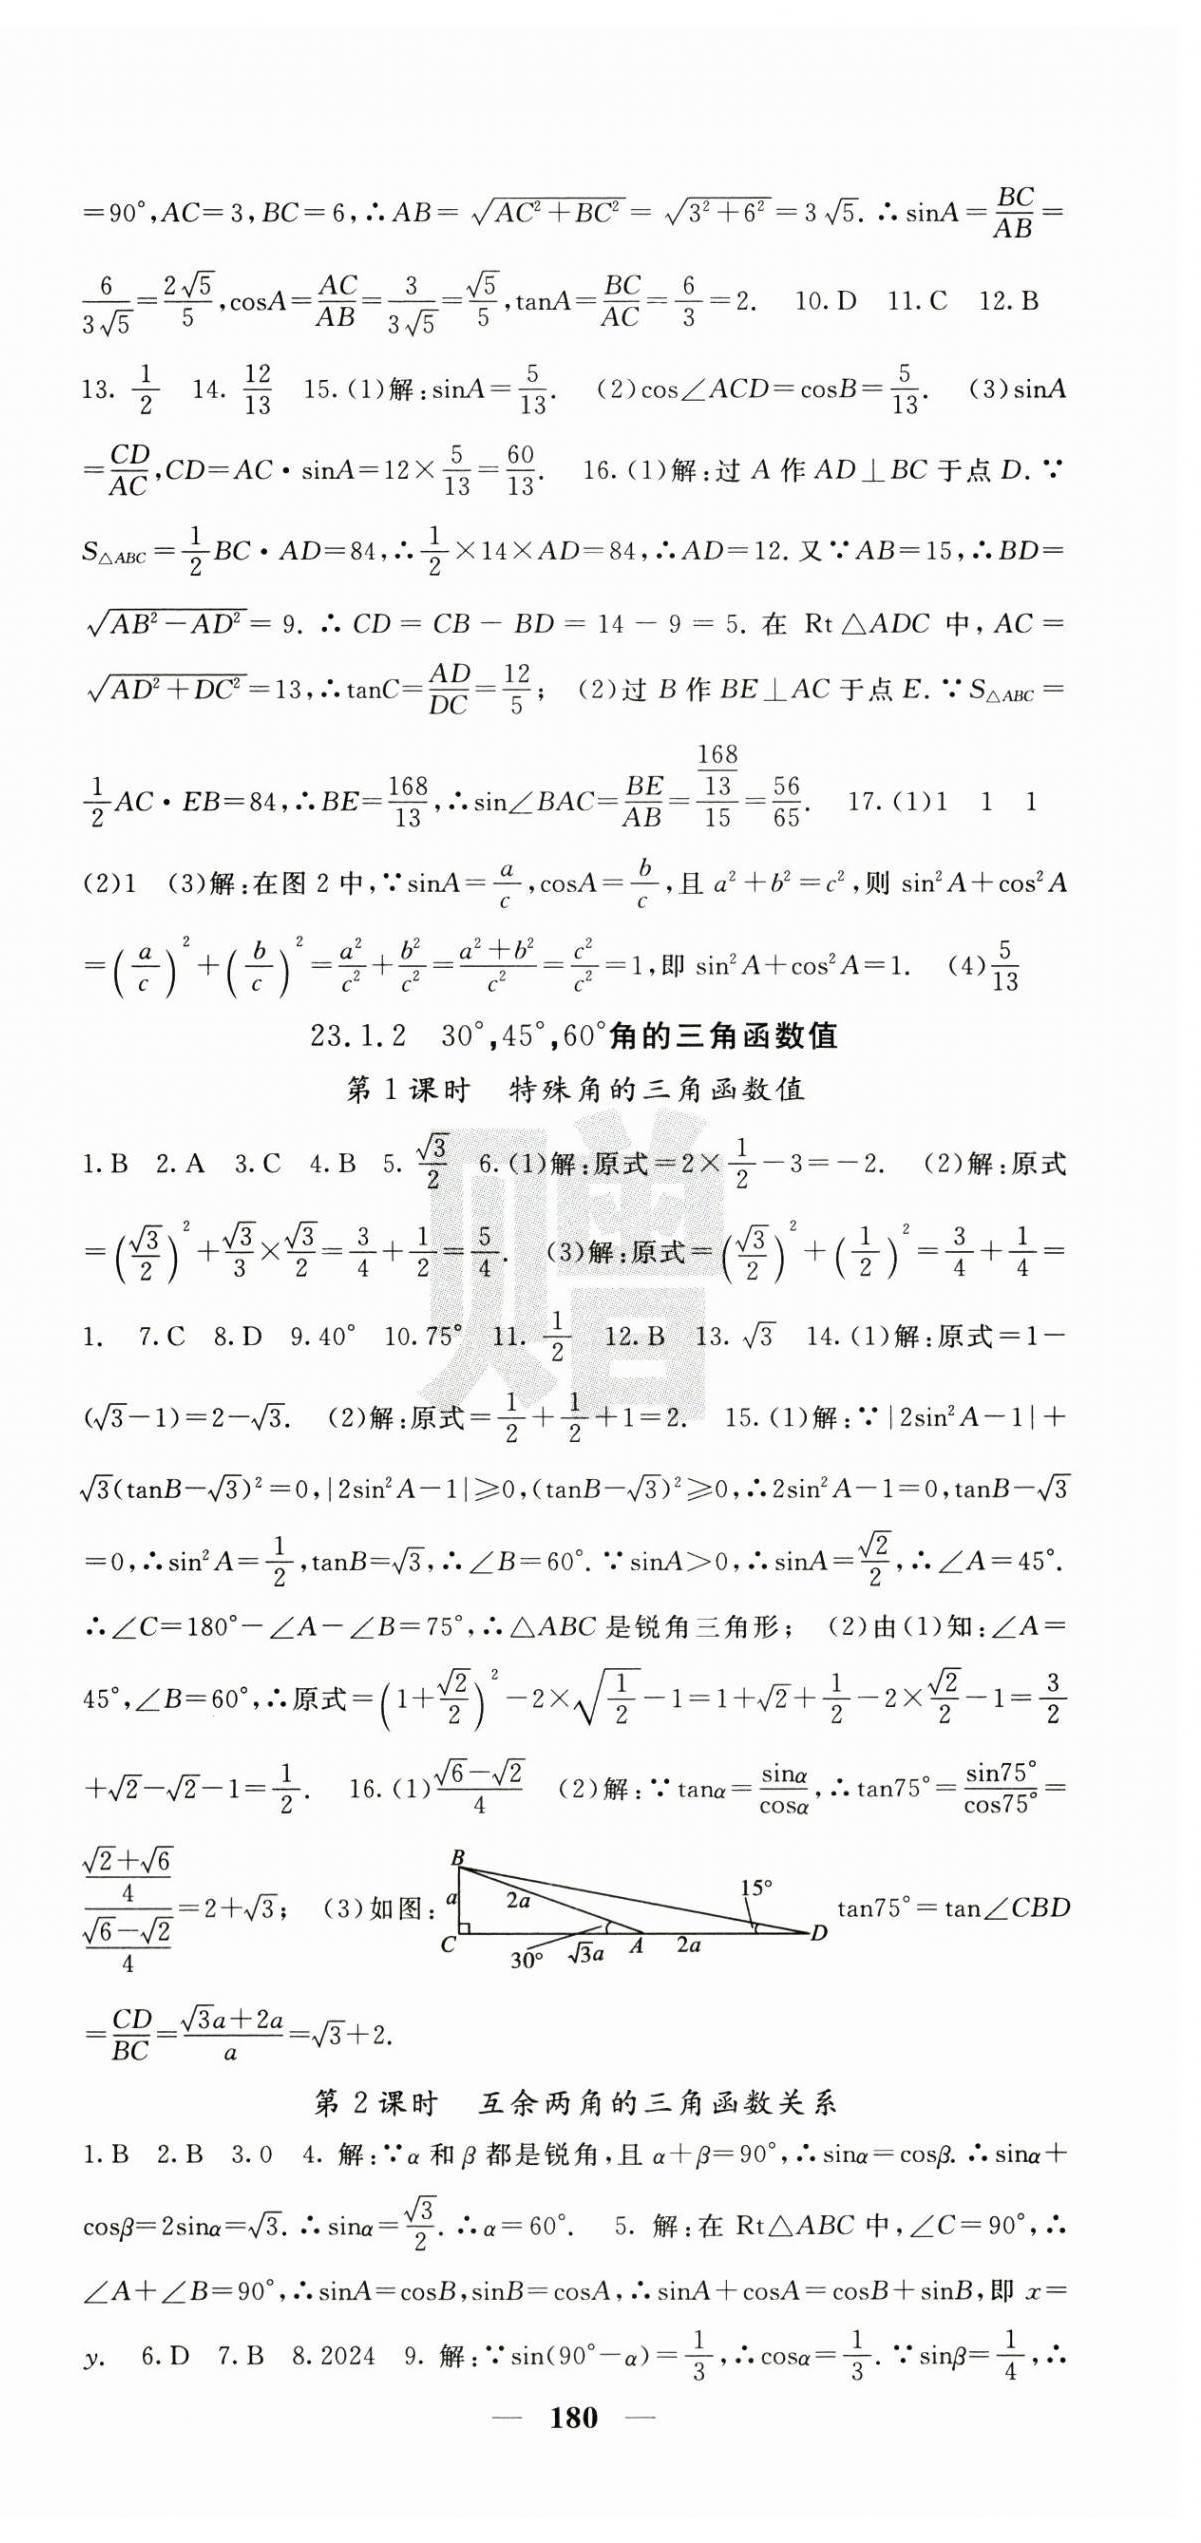 =90°,AC=3,BC=6,∴AB=√(AC²+BC²)=√(3²+6²)=3√5.∴sinA=BC/AB=
6/(3√5)=2√5/5,cosA=AC/AB=3/(3√5)=√5/5,tanA=BC/AC=6/3=2. 10.D 11.C 12.B
13. 1/2 14. 12/13 15.(1)解:sinA=5/13. (2)cos∠ACD=cosB=5/13. (3)sinA
=CD/AC,CD=AC·sinA=12×5/13=60/13. 16.(1)解:过A作AD⊥BC于点D.∵
S△ABC=1/2BC·AD=84,∴1/2×14×AD=84,∴AD=12.又∵AB=15,∴BD=
√(AB²-AD²)=9.∴CD=CB-BD=14-9=5.在Rt△ADC中,AC=
√(AD²+DC²)=13,∴tanC=AD/DC=12/5; (2)过B作BE⊥AC于点E.∵S△ABC=
1/2AC·EB=84,∴BE=168/13,∴sin∠BAC=BE/AB=(168/13)/15=56/65. 17.(1)1 1 1
(2)1 (3)解:在图2中,∵sinA=a/c,cosA=b/c,且a²+b²=c²,则sin²A+cos²A
=(a/c)²+(b/c)²=a²/c²+b²/c²=(a²+b²)/c²=c²/c²=1,即sin²A+cos²A=1. (4)5/13
23.1.2 30°,45°,60°角的三角函数值
第1课时 特殊角的三角函数值
1.B 2.A 3.C 4.B 5. √3/2 6.(1)解:原式=2×1/2-3=-2. (2)解:原式
=(√3/2)²+√3/3×√3/2=3/4+1/2=5/4. (3)解:原式=(√3/2)²+(1/2)²=3/4+1/4=
1. 7.C 8.D 9.40° 10.75° 11. 1/2 12.B 13. √3 14.(1)解:原式=1-
(√3-1)=2-√3. (2)解:原式=1/2+1/2+1=2. 15.(1)解:∵|2sin²A-1|+
√3(tanB-√3)²=0,|2sin²A-1|≥0,(tanB-√3)²≥0,∴2sin²A-1=0,tanB-√3
=0,∴sin²A=1/2,tanB=√3,∴∠B=60°.∵sinA>0,∴sinA=√2/2,∴∠A=45°.
∴∠C=180°-∠A-∠B=75°,∴△ABC是锐角三角形; (2)由(1)知:∠A=
45°,∠B=60°,∴原式=(1+√2/2)²-2×√(1/2)-1=1+√2+1/2-2×√2/2-1=3/2
+√2-√2-1=1/2. 16.(1)(√6-√2)/4 (2)解:∵tanα=sinα/cosα,∴tan75°=sin75°/cos75°=
((√2+√6)/4)/((√6-√2)/4)=2+√3; (3)如图: B a 2a 15° C 30° √3a A 2a D tan75°=tan∠CBD
=CD/BC=(√3a+2a)/a=√3+2.
第2课时 互余两角的三角函数关系
1.B 2.B 3.0 4.解:∵α和β都是锐角,且α+β=90°,∴sinα=cosβ.∴sinα+
cosβ=2sinα=√3.∴sinα=√3/2.∴α=60°. 5.解:在Rt△ABC中,∠C=90°,∴
∠A+∠B=90°,∴sinA=cosB,sinB=cosA,∴sinA+cosA=cosB+sinB,即x=
y. 6.D 7.B 8.2024 9.解:∵sin(90°-α)=1/3,∴cosα=1/3.∵sinβ=1/4,∴
— 180 —
赠